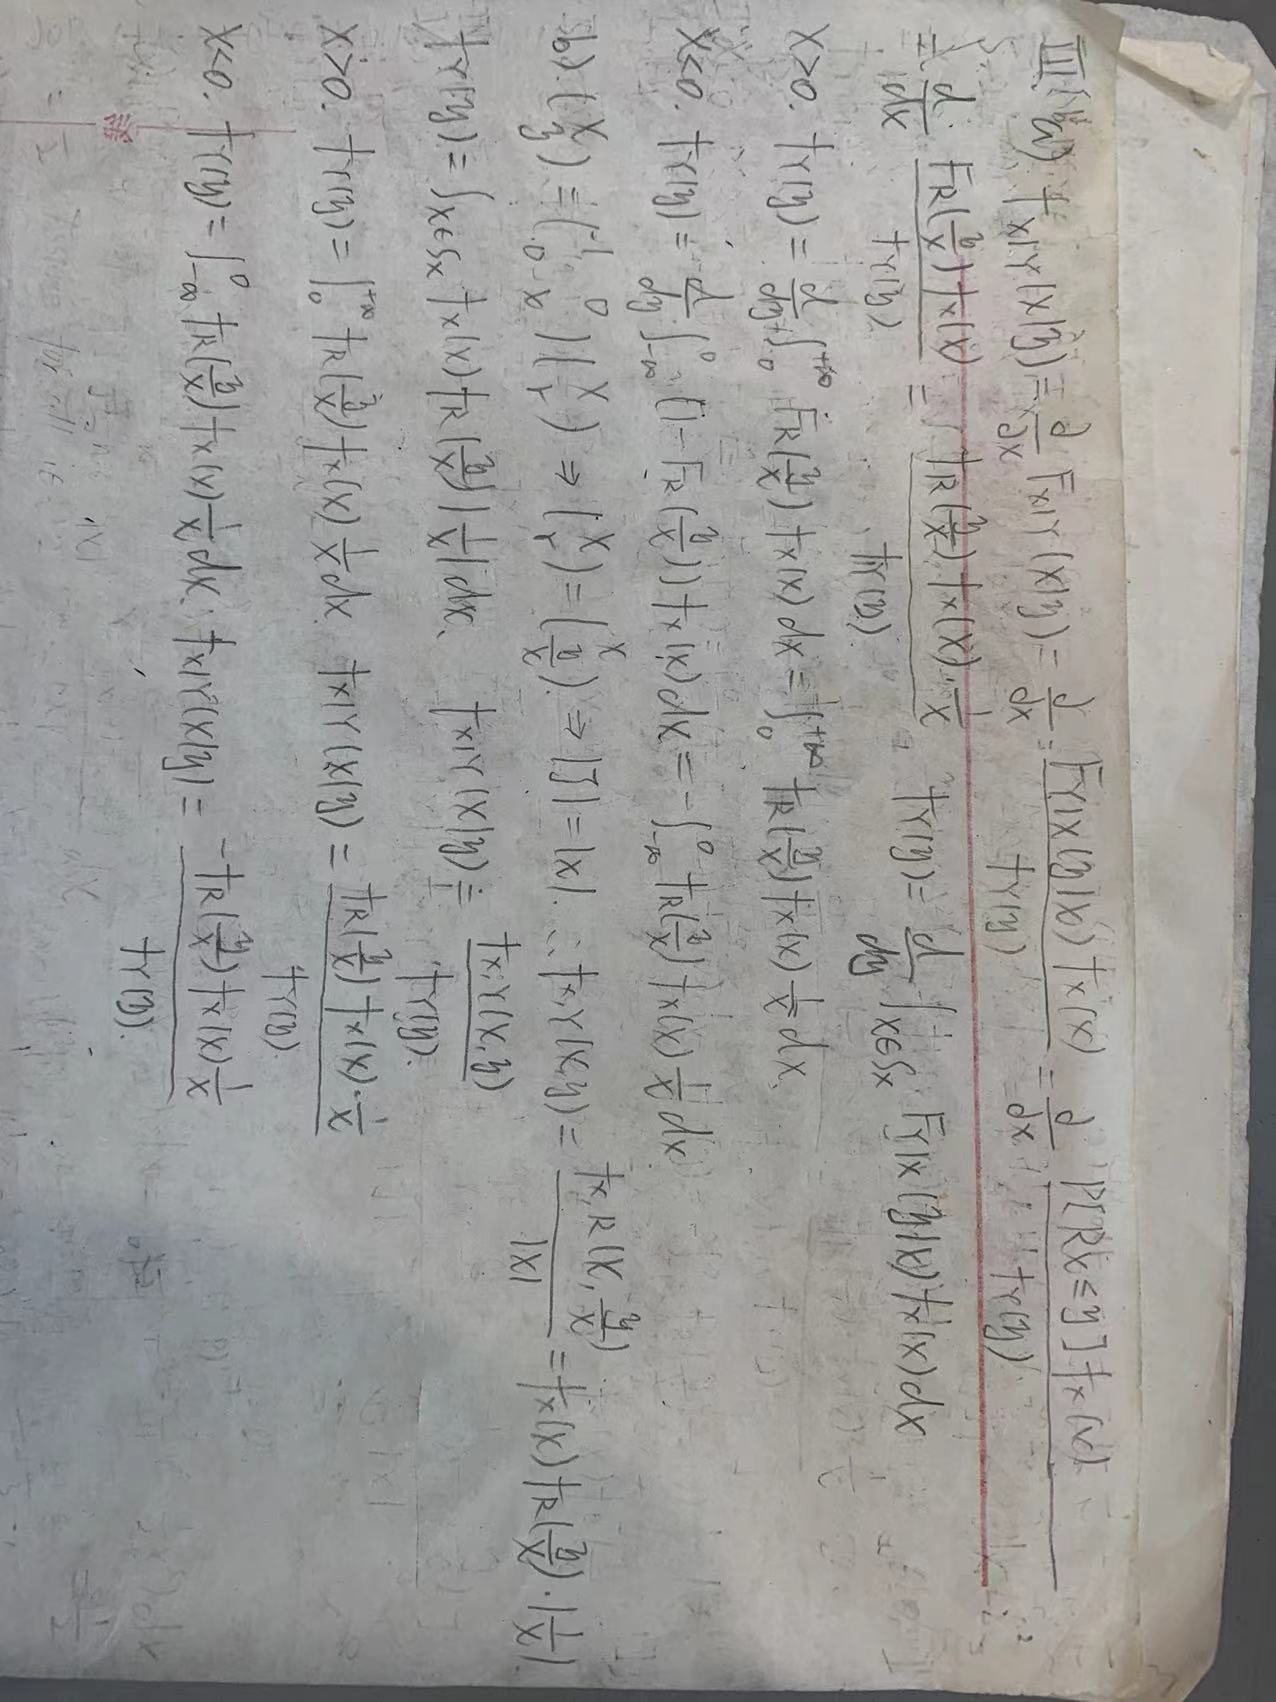 III. a). f_{X|Y}(x|y) = ∂/∂x F_{X|Y}(x|y) = ∂/∂x · F_{Y|X}(y|x) f_X(x) / f_Y(y) = ∂/∂x · P[Rx ≤ y] f_X(x) / f_Y(y)
= d/dx · F_R(y/x) f_X(x) / f_Y(y) = f_R(y/x) f_X(x) · 1/x / f_Y(y). f_Y(y) = d/dy ∫_{x∈S_X} F_{Y|X}(y|x) f_X(x) dx
x>0. f_Y(y) = d/dy ∫_0^{+∞} F_R(y/x) f_X(x) dx = ∫_0^{+∞} f_R(y/x) f_X(x) 1/x dx.
x<0. f_Y(y) = d/dy ∫_{-∞}^0 (1-F_R(y/x)) f_X(x) dx = -∫_{-∞}^0 f_R(y/x) f_X(x) 1/x dx
b). (x y) = (1 0 0 x)(x r) ⇒ (x r) = (x y/x) ⇒ |J| = |x|. ∴ f_{X,Y}(x,y) = f_{X,R}(x, y/x) / |x| = f_X(x) f_R(y/x) · |1/x|.
f_Y(y) = ∫_{x∈S_X} f_X(x) f_R(y/x) |1/x| dx. f_{X|Y}(x|y) = f_{X,Y}(x,y) / f_Y(y).
x>0. f_Y(y) = ∫_0^{+∞} f_R(y/x) f_X(x) 1/x dx. f_{X|Y}(x|y) = f_R(y/x) f_X(x) · 1/x / f_Y(y)
x<0. f_Y(y) = ∫_{-∞}^0 f_R(y/x) f_X(x) 1/x dx. f_{X|Y}(x|y) = -f_R(y/x) f_X(x) 1/x / f_Y(y).